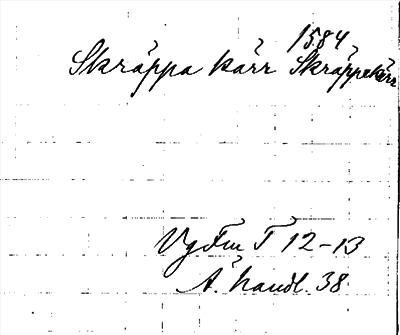 1584
Skräppa kärr Skräppekärr
Vg Fm T 12-13
Å. handl. 38